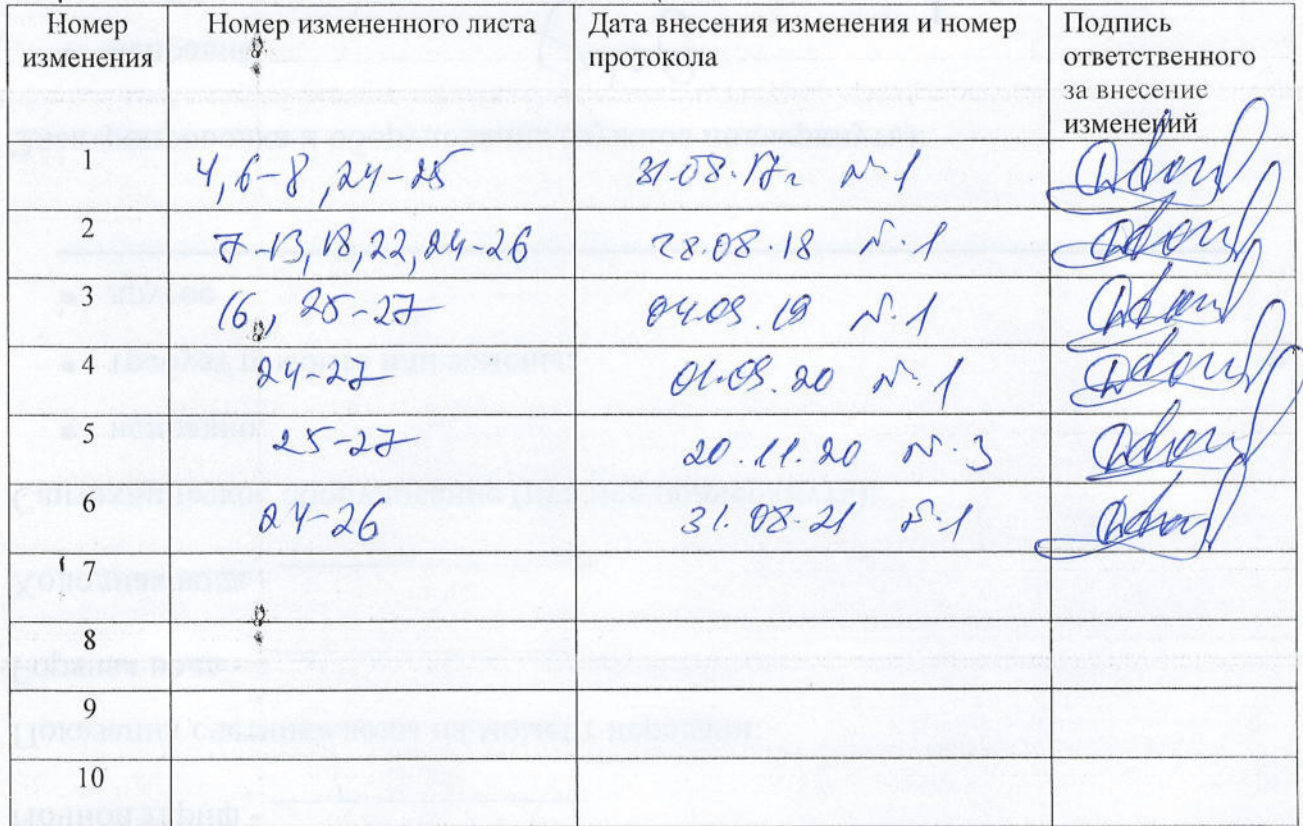 Номер изменения Номер измененного листа Дата внесения изменения и номер протокола Подпись ответственного за внесение изменений
1 4, 6-8, 24-25 31.08.17г №1
2 7-13, 18, 22, 24-26 28.08.18 №1
3 16, 25-27 04.09.19 №1
4 24-27 01.09.20 №1
5 25-27 20.11.20 №3
6 24-26 31.08.21 №1
7
8
9
10